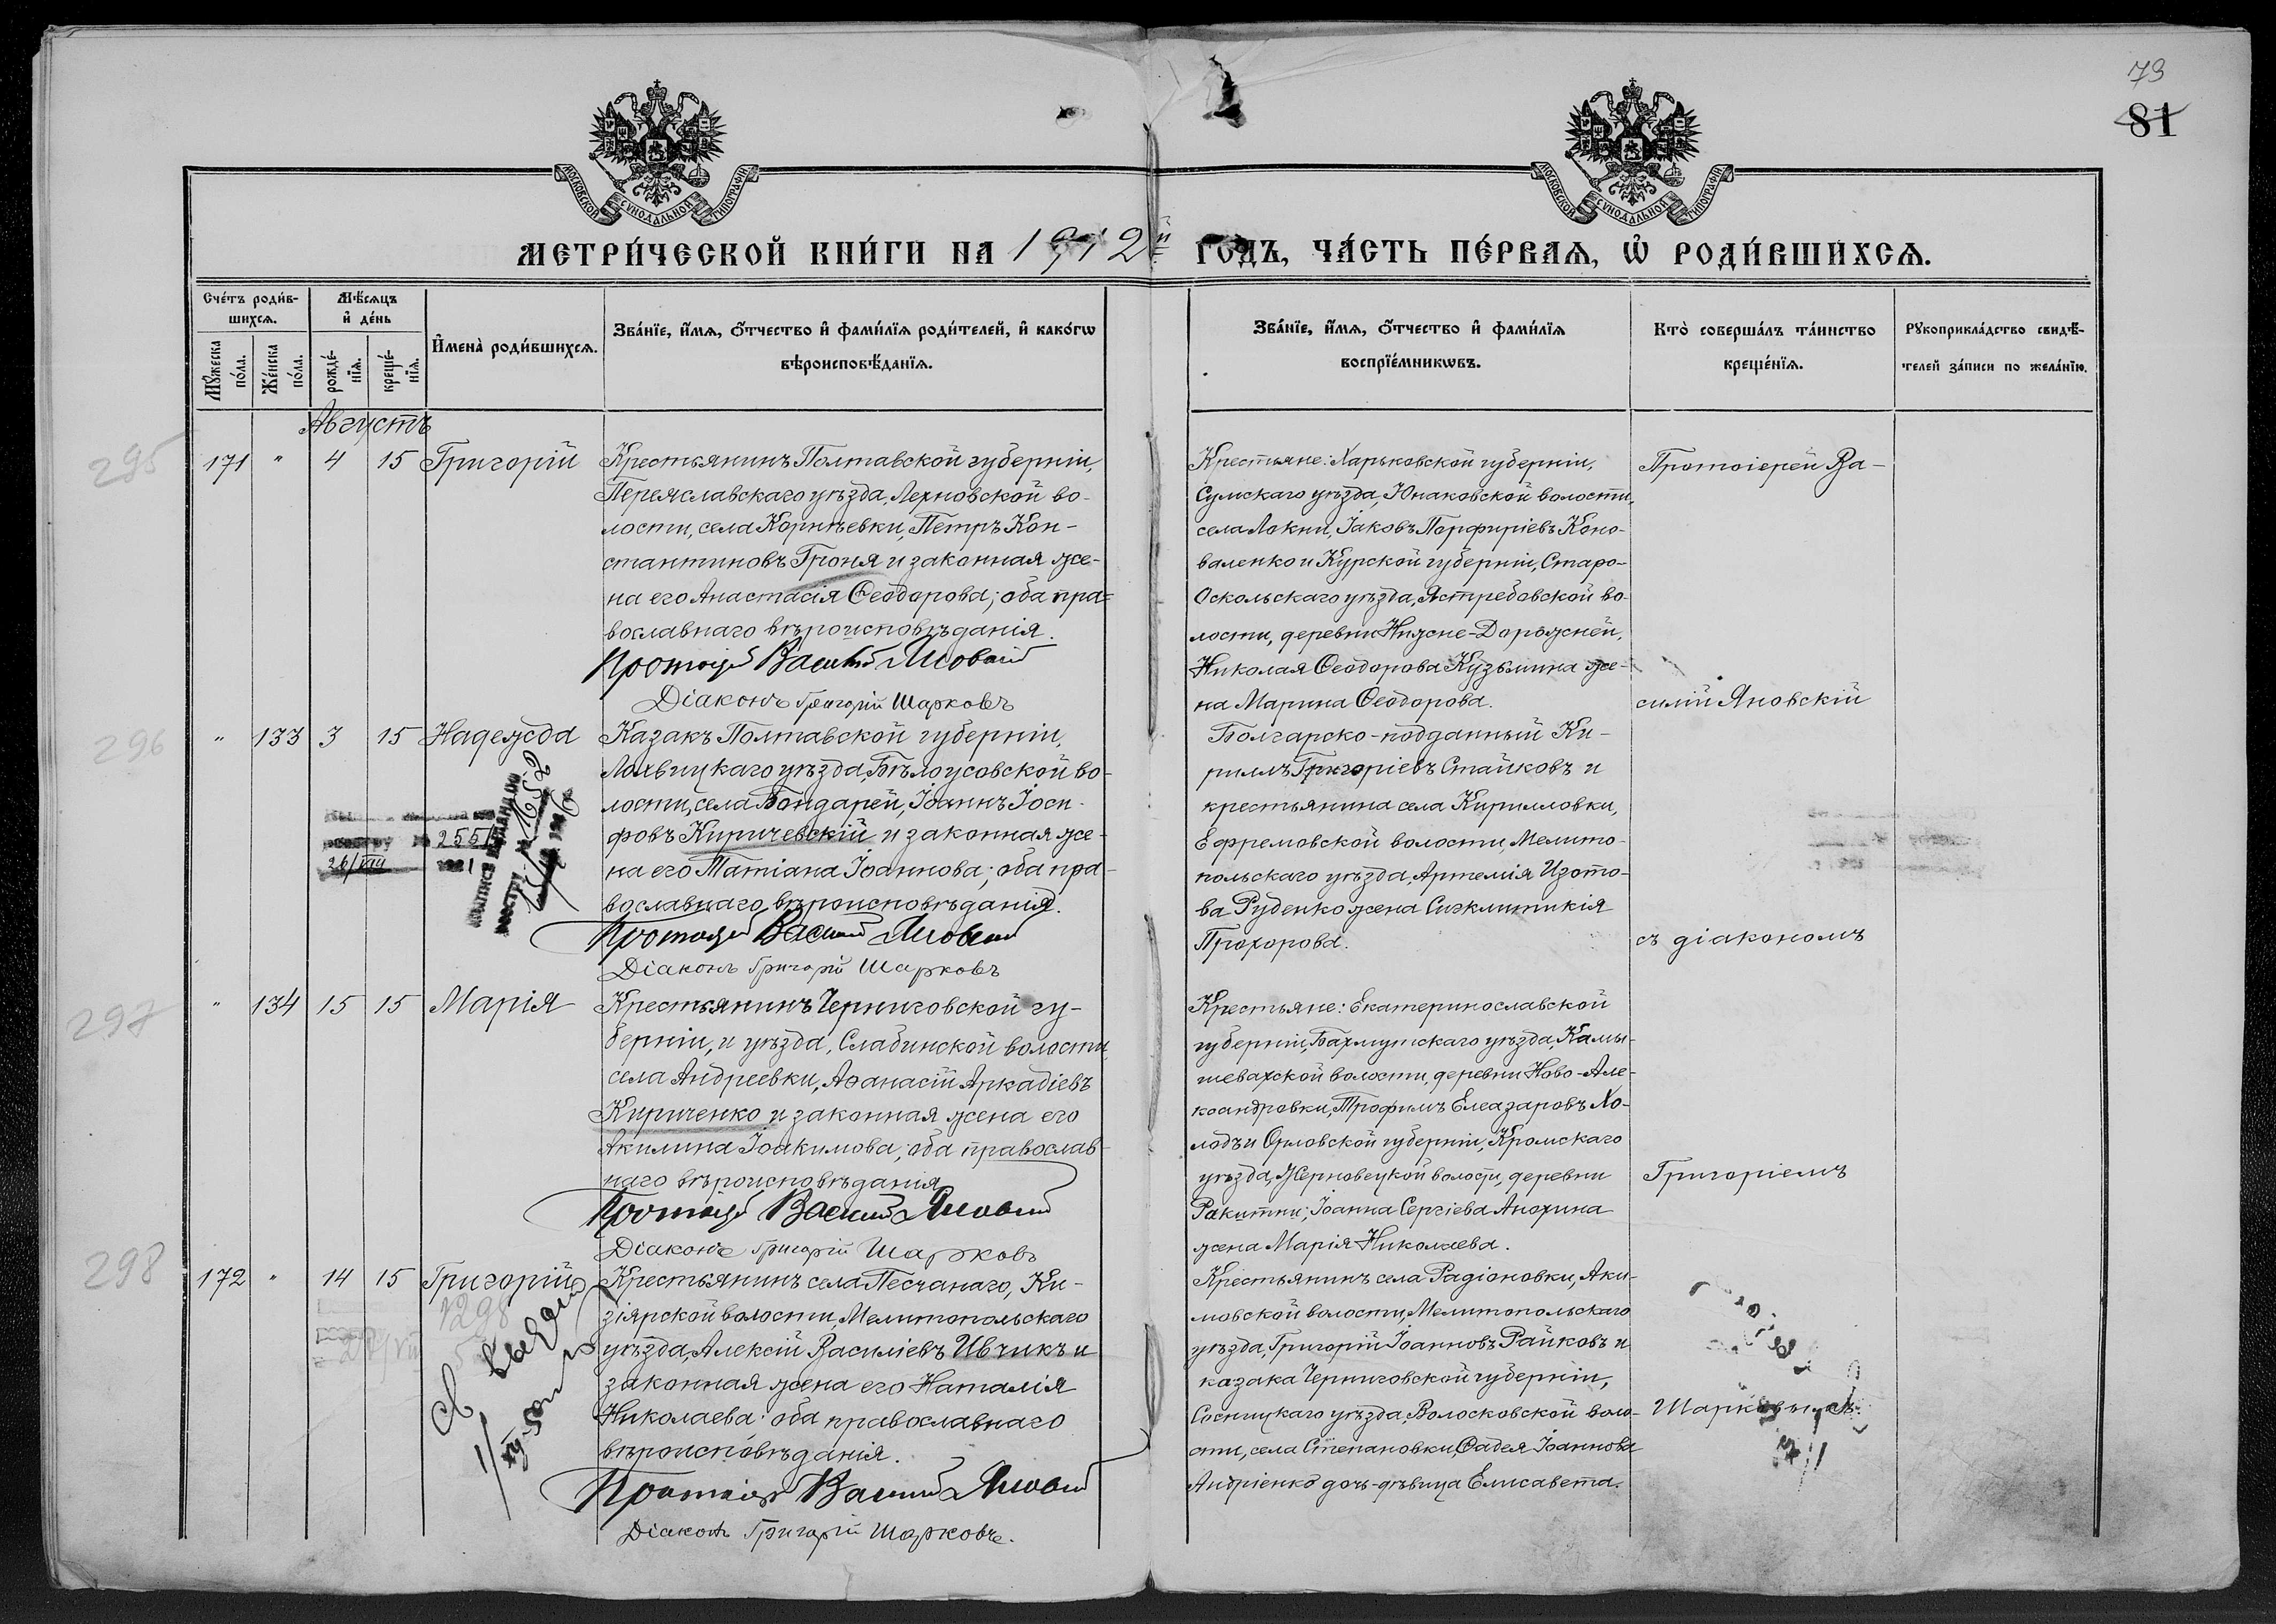 79
81
МОСКОВСКОЙ СѴНОДАЛЬНОЙ ТИПОГРАФІИ
МОСКОВСКОЙ СѴНОДАЛЬНОЙ ТИПОГРАФІИ
МЕТРИ́ЧЕСКОЙ КНИ́ГИ НА 1912й ГОДЪ, ЧА́СТЬ ПЕ́РВАѦ, Ѡ РОДИ́ВШИХСѦ.
Сче́тъ роди́в-
шихсѧ.
Мѣ́сѧцъ
и҆ де́нь
Мꙋ́жеска по́ла.
Же́нска по́ла.
рожде́-нїѧ.
креще́-нїѧ.
И҆мена̀ роди́вшихсѧ.
Зва́нїе, и҆́мѧ, ѻ҆́тчество и҆ фами́лїѧ роди́телей, и҆ како́гѡ
вѣроисповѣ́данїѧ.
Зва́нїе, и҆́мѧ, ѻ҆́тчество и҆ фами́лїѧ
воспрїе́мникѡвъ.
Кто̀ соверша́лъ та́инство
креще́нїѧ.
Рꙋкоприкла́дство свидѣ́-
телей за́писи по жела́нїю.
Августъ
295
171 " 4 15 Григорій
Крестьянинъ Полтавской губерніи,
Переяславскаго уѣзда, Лехновской во-
лости, села Корнѣевки, Петръ Кон-
стантиновъ Гроня и законная же-
на его Анастасія Ѳеодорова; оба пра-
вославнаго вѣроисповѣданія.
Протоіерей Василій Яновскій
Діаконъ Григорій Шарковъ
Крестьяне: Харьковской губерніи,
Сумскаго уѣзда, Юнаковской волости,
села Локни, Іаковъ Порфиріевъ Коно-
валенко и Курской губерніи, Старо-
Оскольскаго уѣзда, Ястребовской во-
лости, деревни Нижне-Дорожней,
Николая Ѳеодорова Кузьмина же-
на Марина Ѳеодорова.
Протоіерей Ва-
силій Яновскій
296
" 133 3 15 Надежда
2551
26/VIII 1921
Казакъ Полтавской губерніи,
Лохвицкаго уѣзда, Бѣлоусовской во-
лости, села Бондарей, Іоаннъ Іоси-
фовъ Киричевскій и законная же-
на его Татіана Іоаннова; оба пра-
вославнаго вѣроисповѣданія.
Протоіерей Василій Яновскій
Діаконъ Григорій Шарковъ
Болгарско-подданный Ки-
риллъ Григоріевъ Стайковъ и
крестьянина села Кирилловки,
Ефремовской волости, Мелито-
польскаго уѣзда, Артемія Изото-
ва Руденко жена Сигклитикія
Прохорова.
съ діакономъ
297
" 134 15 15 Марія
Крестьянинъ Черниговской гу-
берніи, и уѣзда, Слабинской волости
села Андреевки, Аѳанасій Аркадіевъ
Кириченко и законная жена его
Акилина Іоакимова; оба православ-
наго вѣроисповѣданія
Протоіерей Василій Яновскій
Діаконъ Григорій Шарковъ
Крестьяне: Екатеринославской
губерніи, Бахмутскаго уѣзда, Камы-
шевахской волости, деревни Ново-Але-
ксандровки, Трофимъ Елеазаровъ Хо-
лодъ и Орловской губерніи, Кромскаго
уѣзда, Жерновецкой волости, деревни
Ракитни; Іоанна Сергіева Анохина
жена Марія Николаева.
Григоріемъ
298
172 " 14 15 Григорій
1298
Крестьянинъ села Песчанаго, Ки-
зіярской волости, Мелитопольскаго
уѣзда, Алексій Василіевъ Ивчикъ и
законная жена его Наталія
Николаева: оба православнаго
вѣроисповѣданія.
Протоіерей Василій Яновскій
Діаконъ Григорій Шарковъ.
Крестьянинъ села Радіоновки, Аки-
мовской волости, Мелитопольскаго
уѣзда, Григорій Іоанновъ Райковъ и
казака Черниговской губерніи,
Сосницкаго уѣзда, Волосковской воло-
сти, села Степановки, Ѳадея Іоаннова
Андріенко дочь-дѣвица Елисавета.
Шарковымъ